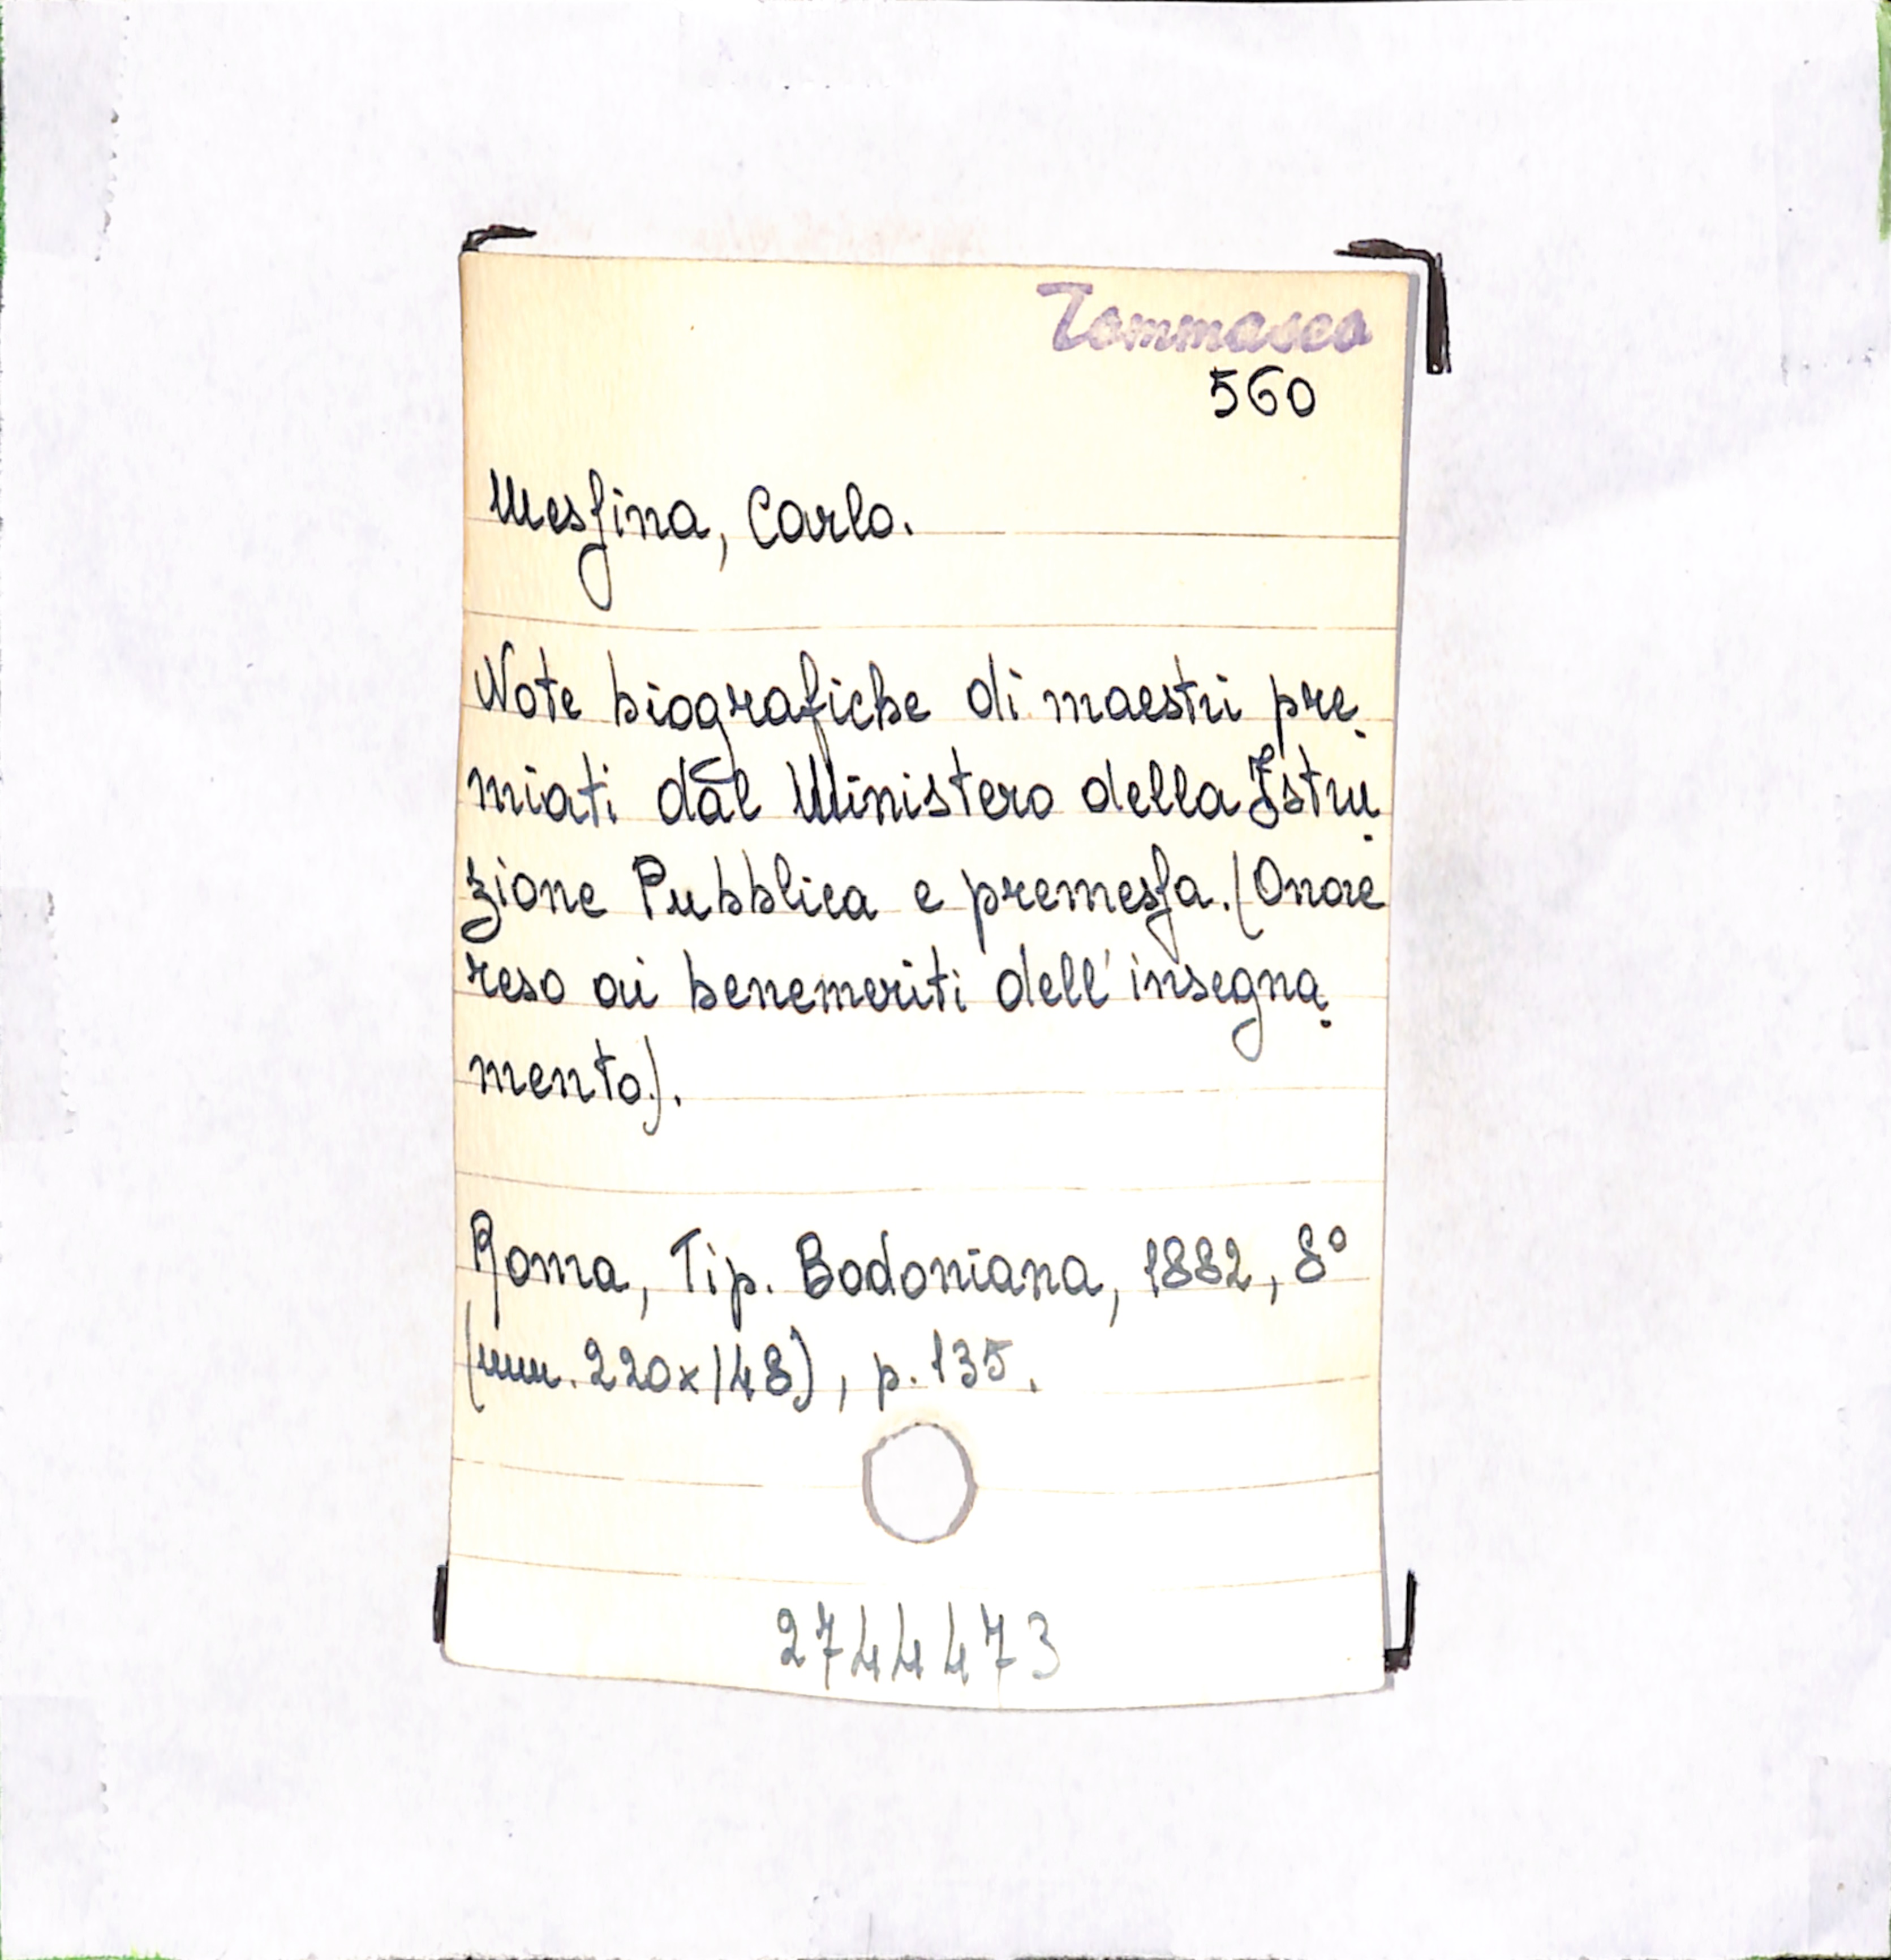 Tommaseo
560
Messina, Carlo.
Note biografiche di maestri pre
miati dal Ministero della Istru
zione Pubblica e premessa. (Onore
reso ai benemeriti dell'insegna
mento).
Roma, Tip. Bodoniana, 1882, 8°
(mm. 220x148), p. 135.
2744473